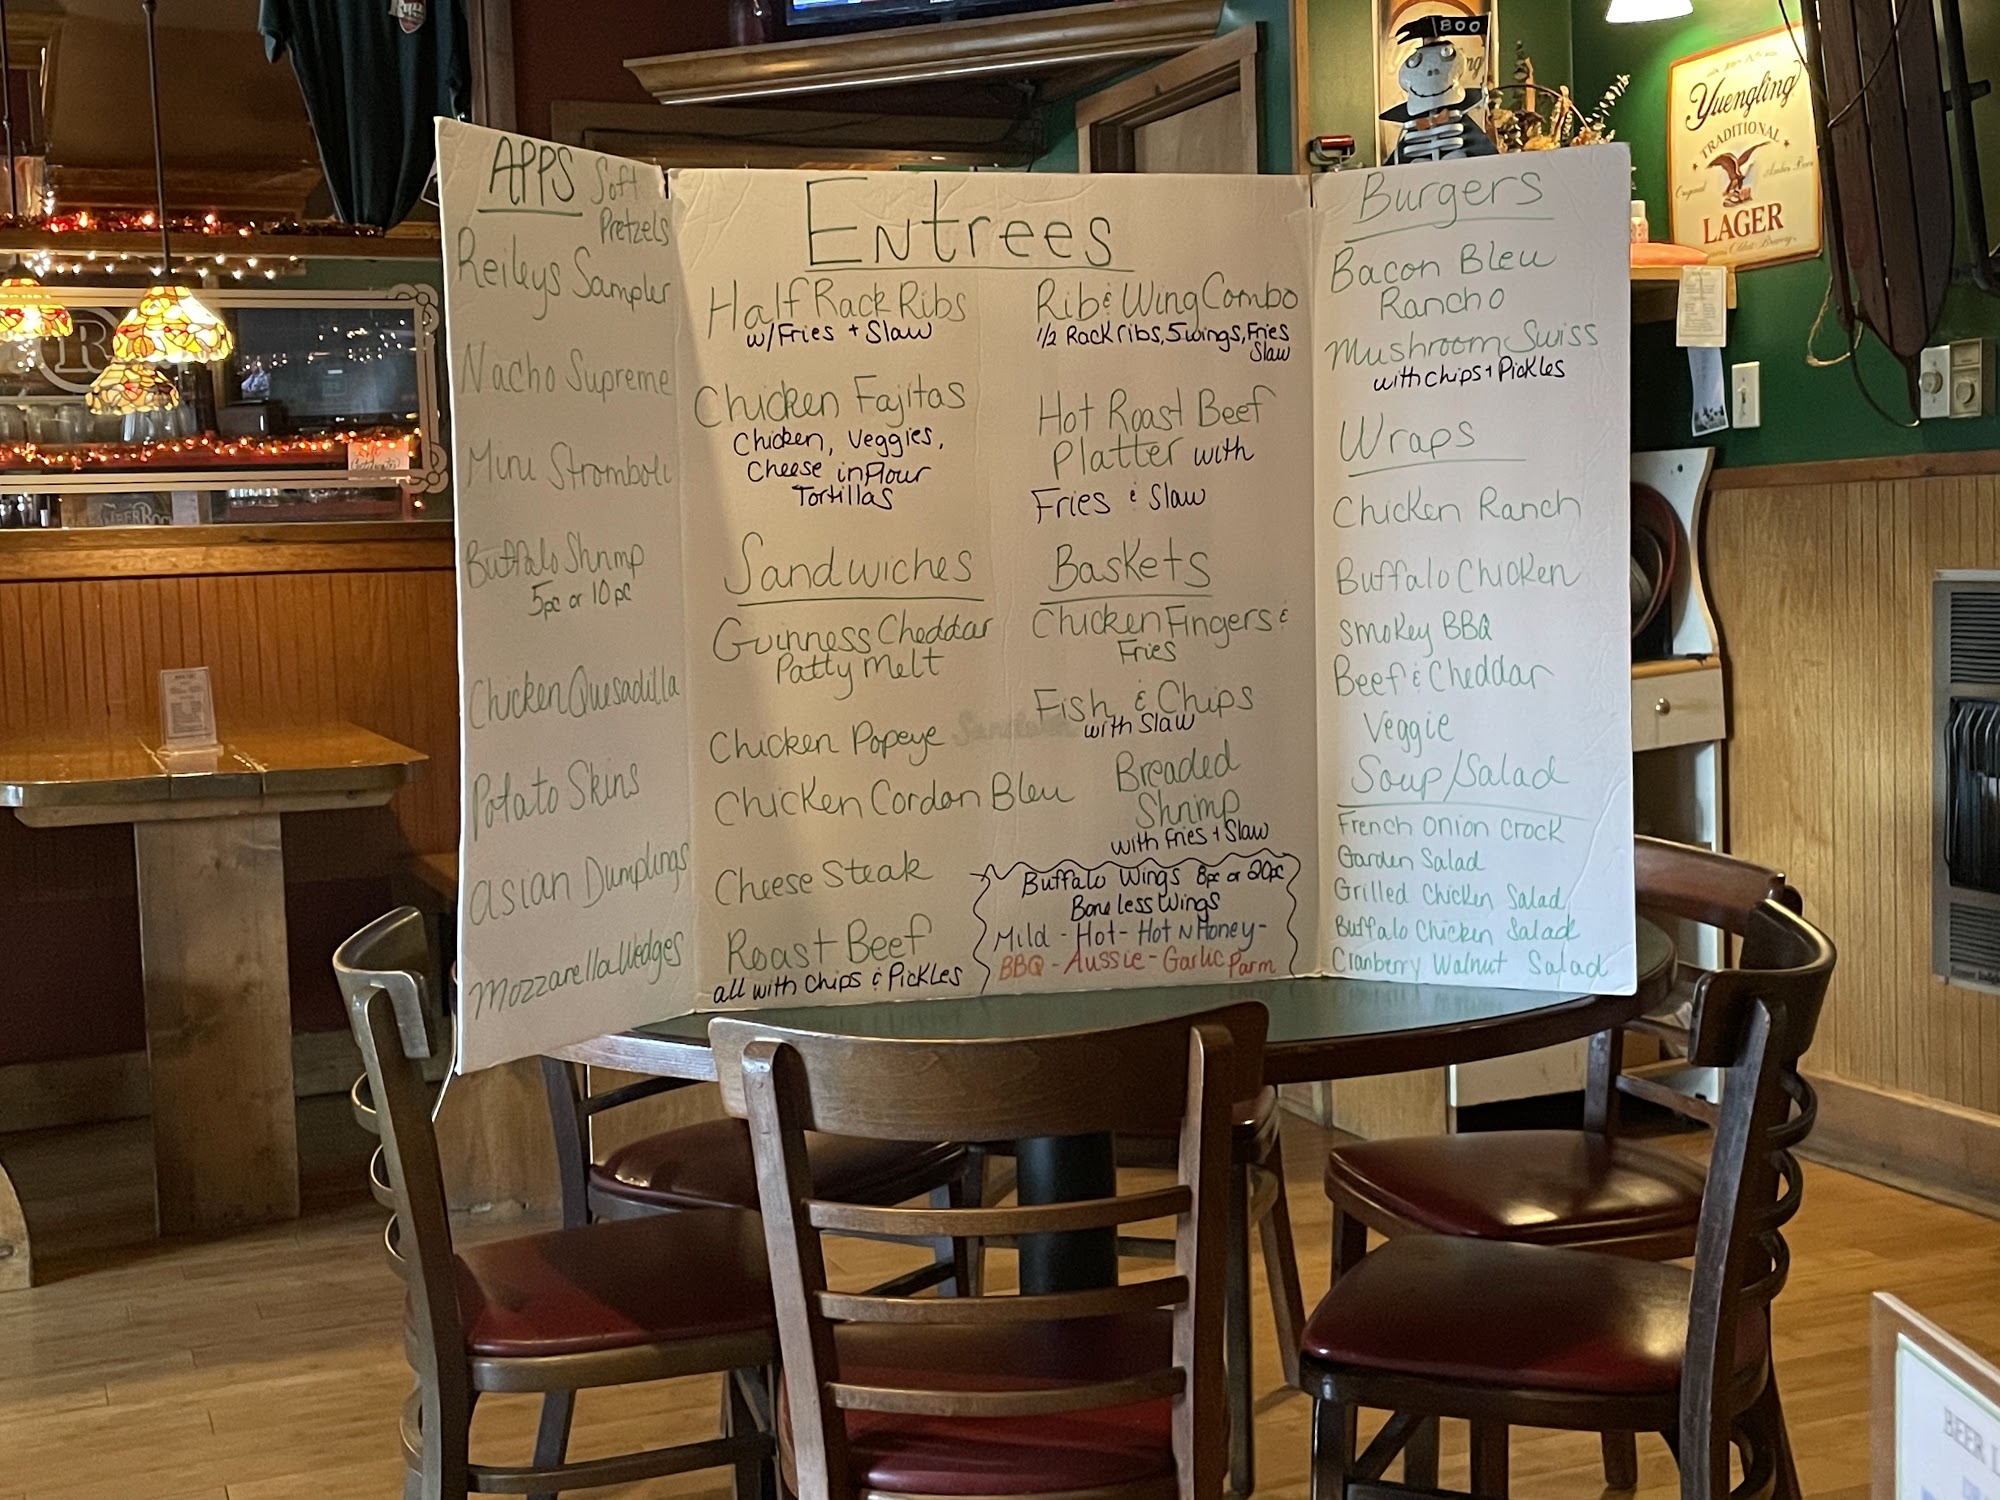 APPS Soft
Pretzels
Reileys Sampler
Nacho Supreme
Mini Stromboli
Buffalo Shrimp
5pc or 10pc
Chicken Quesadilla
Potato Skins
Asian Dumplings
Mozzarella Wedges
Entrees
Half Rack Ribs
w/ Fries + Slaw
Chicken Fajitas
Chicken, Veggies,
Cheese in Flour
Tortillas
Rib & Wing Combo
1/2 Rack ribs, 5 wings, Fries
Slaw
Hot Roast Beef
Platter with
Fries & Slaw
Sandwiches
Guinness Cheddar
Patty Melt
Chicken Popeye
Chicken Cordon Bleu
Cheese Steak
Roast Beef
all with Chips & Pickles
Baskets
Chicken Fingers &
Fries
Fish & Chips
with Slaw
Breaded
Shrimp
with Fries + Slaw
Buffalo Wings 8pc or 20pc
Boneless Wings
Mild - Hot - Hot N Honey -
BBQ - Aussie - Garlic Parm
Burgers
Bacon Bleu
Rancho
Mushroom Swiss
with chips + Pickles
Wraps
Chicken Ranch
Buffalo Chicken
Smokey BBQ
Beef & Cheddar
Veggie
Soup/Salad
French Onion Crock
Garden Salad
Grilled Chicken Salad
Buffalo Chicken Salad
Cranberry Walnut Salad
BOO
Yuengling
TRADITIONAL
Original
LAGER
R
BEER